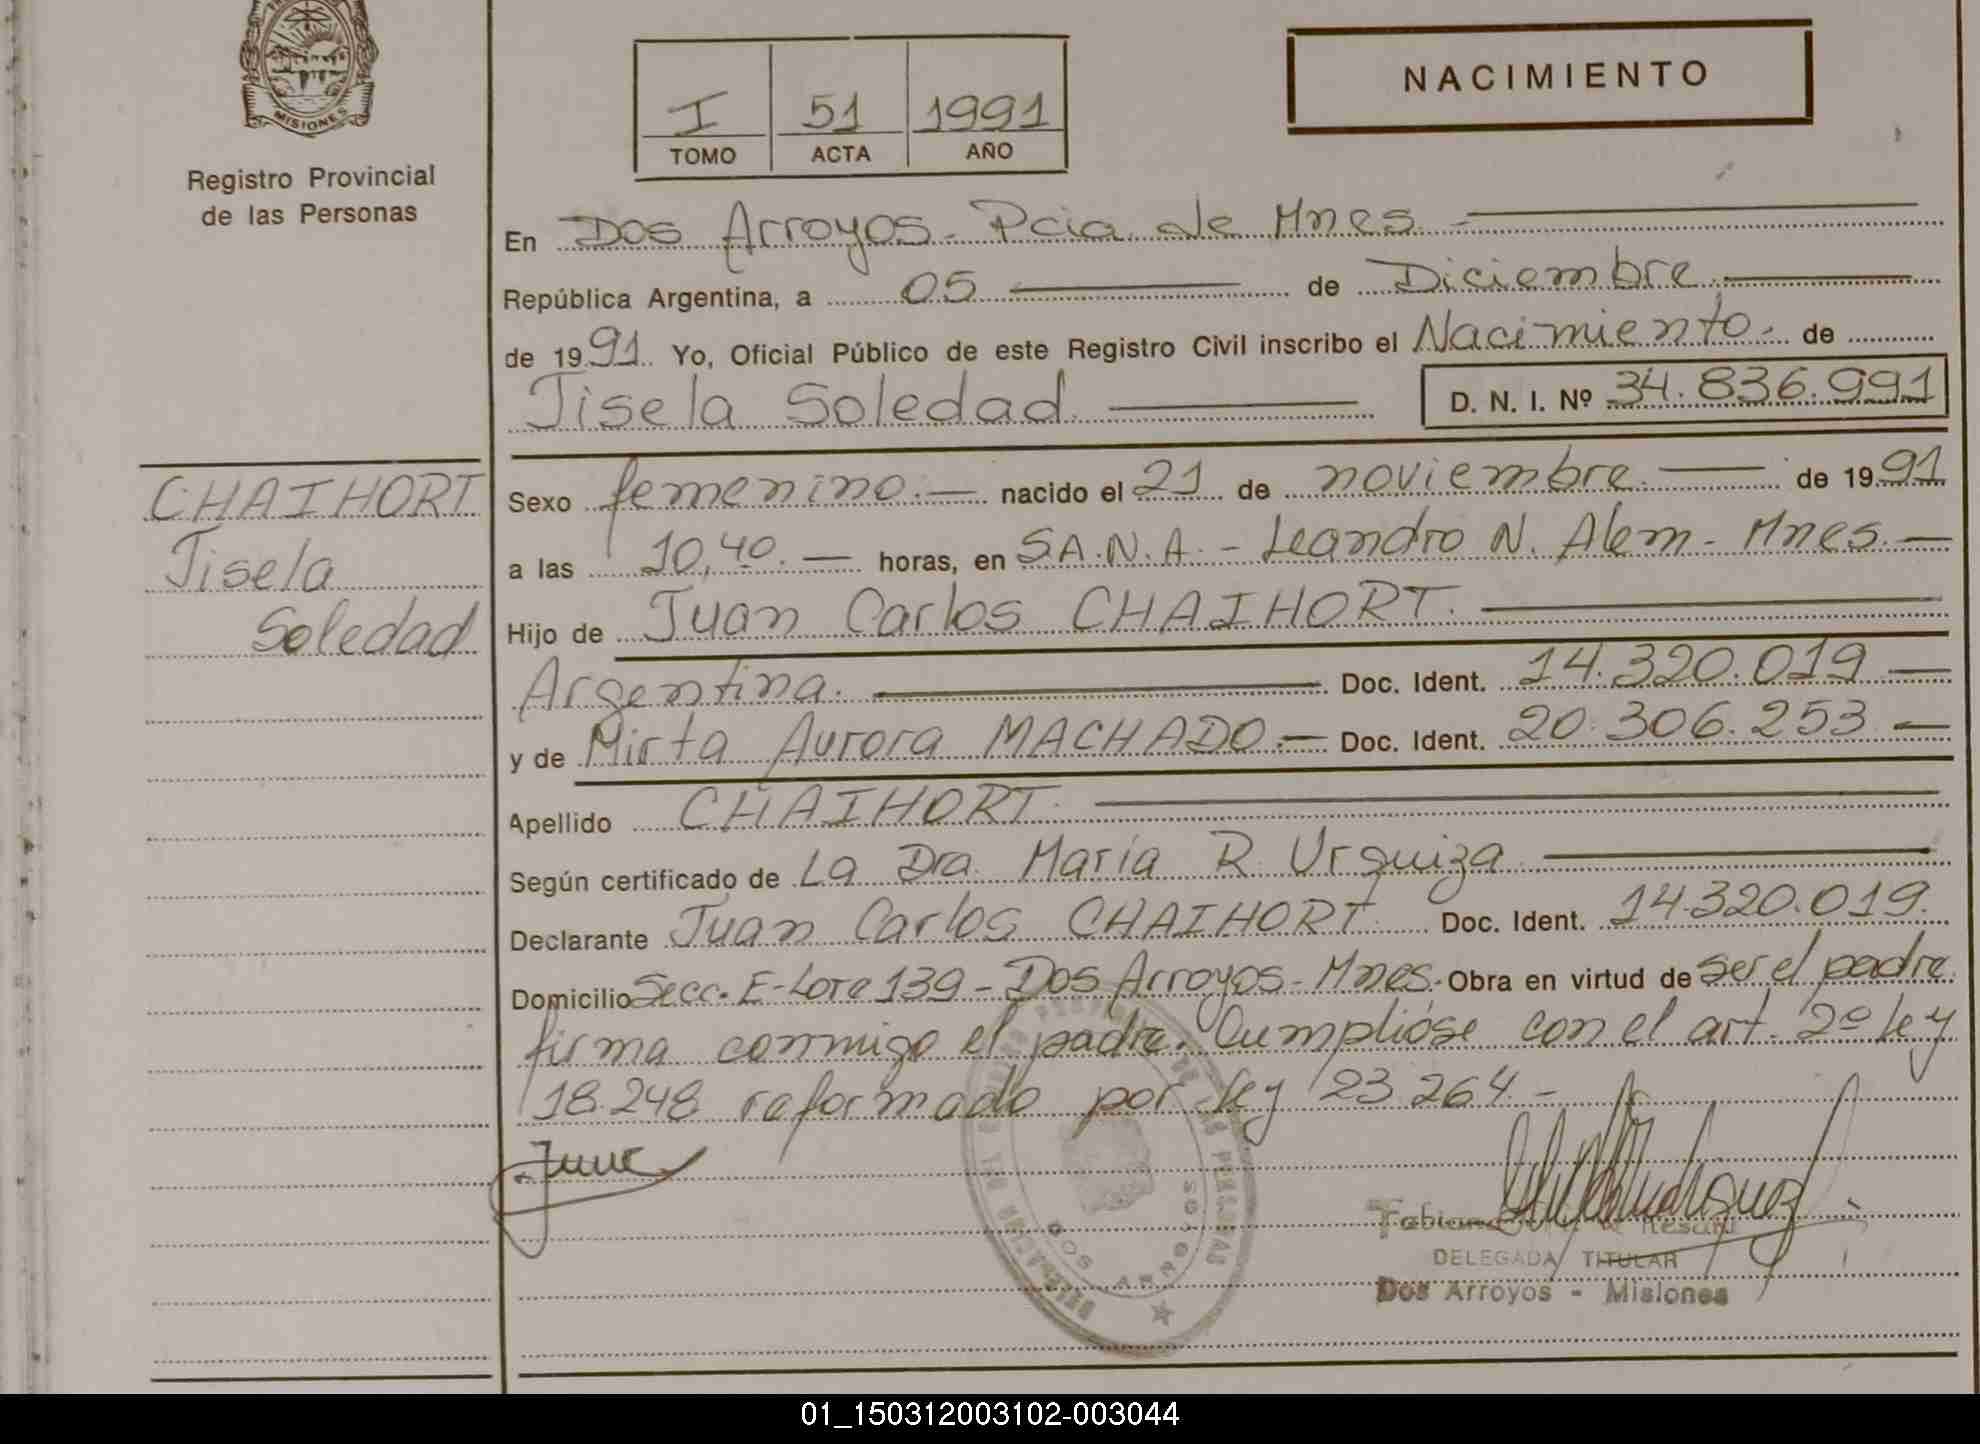 MISIONES
Registro Provincial
de las Personas
I 51 1991
TOMO ACTA AÑO
NACIMIENTO
En Dos Arroyos - Pcia de Mnes -
República Argentina, a 05 de Diciembre
de 1991. Yo, Oficial Público de este Registro Civil inscribo el Nacimiento - de
Jisela Soledad.
D. N. I. Nº 34.836.991
CHAIHORT
Jisela
Soledad
Sexo femenino. — nacido el 21 de noviembre. — de 1991
a las 10,40. — horas, en S.A.N.A. - Leandro N. Alem - Mnes. —
Hijo de Juan Carlos CHAIHORT.
Argentina. Doc. Ident. 14.320.019 —
y de Mirta Aurora MACHADO. — Doc. Ident. 20.306.253 —
Apellido CHAIHORT.
Según certificado de La Dra. María R. Urquiza
Declarante Juan Carlos CHAIHORT. Doc. Ident. 14.320.019.
Domicilio Secc. E-Lote 139 - Dos Arroyos - Mnes. Obra en virtud de ser el padre
firma conmigo el padre. Cumplióse con el art. 2º Ley
18.248 reformado por Ley 23.264. -
DOS ARROYOS
DELEGADA TITULAR
Dos Arroyos - Misiones
01_150312003102-003044